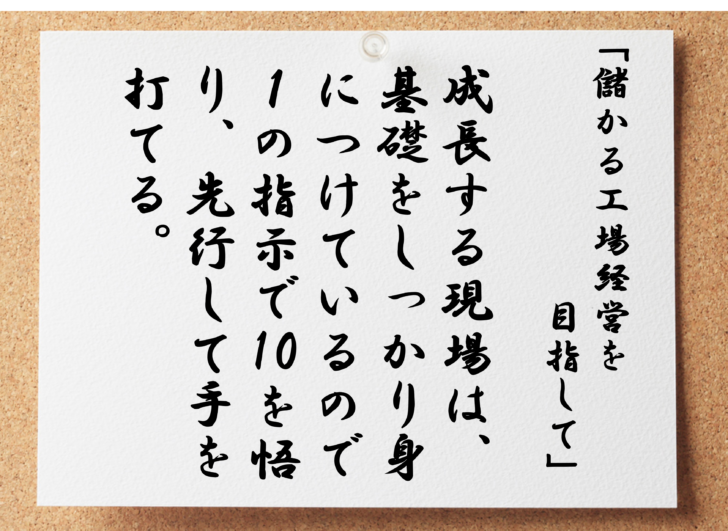 「儲かる工場経営を
目指して」
成長する現場は、
基礎をしっかり身
につけているので
1の指示で10を悟
り、先行して手を
打てる。